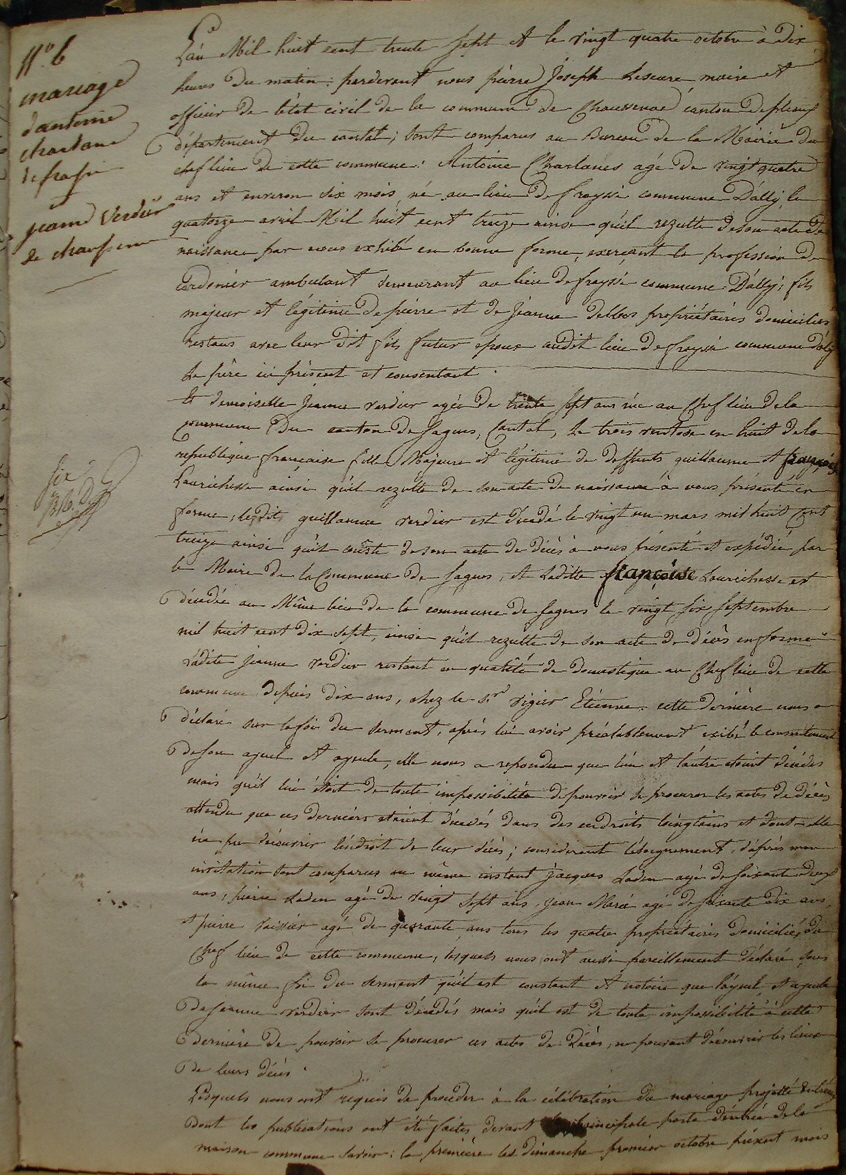 N° 6
mariage
d'antoine
charlanes
de frayssi
et
jeanne Verdier
de chaussenac
L'an Mil huit cent trente sept et le vingt quatre octobre à dix
heures du matin : pardevant nous pierre Joseph Lescure maire et
officier de l'état civil de la commune de Chaussenac canton de pleaux
département du cantal ; sont comparus au Bureau de la Mairie du
chef lieu de cette commune : Antoine Charlanes agé de vingt quatre
ans et environ six mois né au lieu de frayssi commune D'ally le
quatorze avril Mil huit cent treize ainsi qu'il rezulte de son acte de
naissance par nous exhibé en bonne forme, exerçant la profession de
cordonier ambulant demeurant au lieu de freyssi commune D'ally ; fils
majeur et légitime de pierre et de Jeanne propriétaires domiciliés
restans avec leur dit fils futur epoux audit lieu de freyssi commune d'ally
le père ici présent et consentant .
Et demoiselle Jeanne verdier agée De trente sept ans née au Chef lieu de la
commune du canton de Saques, Cantal, le trois ventose an huit de la
republique française fille Majeure et légitime de deffunts guillaume et françoise
Lourichesse ainsi qu'il rezulte de son acte de naissance à nous présenté en
forme ; ledit guillaume verdier est décédé le vingt un mars mil huit cent
treize ainsi qu'il conste de son acte de décès à nous présenté et expédié par
le Maire de la Commune de Saques, et Laditte françoise Lourichesse est
décédée au Même lieu de la commune de Saques le vingt six septembre
mil huit cent dix sept, ainsi qu'il rezulte de son acte de décès en forme
ladite jeanne verdier restant en qualité de domestique au Chef lieu de cette
commune depuis dix ans, chez le Sr vigier Etienne . cette dernière nous a
déclaré sur la foi du serment, après lui avoir préalablement exibé le consentement
de son ayeul et ayeule, elle nous a repondu que l'un et l'autre étaient décédés
mais qu'il lui étoit de toute impossibilité de pouvoir se procurer les actes de décès
attendu que ces derniers étaient décédés dans des endroits loingtains et dont elle
n'a pu découvrir l'endroit de leur décès ; considérant l'éloignement, d'après mon
invitation sont comparus au même instant jacques Laden agé de soixante deux
ans, pierre Laden agé de vingt sept ans, jean Marcé agé de soixante dix ans,
et pierre agé de quarante ans tous les quatre propriétaires domiciliés du
Chef lieu de cette commune, lesquels nous ont aussi pareillement déclaré sous
la même foi du serment qu'il est constant et notoire que l'ayeul et ayeule
de Jeanne verdier sont décédés mais qu'il est de toute impossibilité à cette
dernière de pouvoir se procurer ces actes de Décès, ne pouvant découvrir les lieux
de leurs décès .
Lesquels nous ont requis de procéder à la célébration du mariage projetté entr'eux
dont les publications ont été faites devant principale porte d'entrée de la
maison commune savoir : la première les dimanche premier octobre présent mois